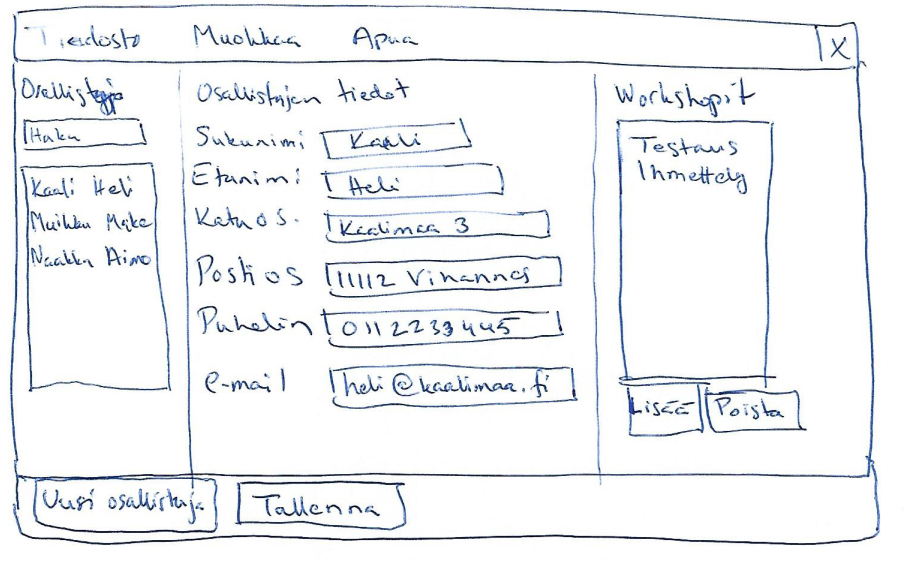 Tiedosto Muokkaa Apua X
Osallistuja
Haku
Kaali Heli
Muikku Make
Naakka Aimo
Osallistujan tiedot
Sukunimi Kaali
Etunimi Heli
Katuos. Kaalimaa 3
Posti os 11112 Vihannes
Puhelin 011 22 33 445
e-mail heli@kaalimaa.fi
Workshopit
Testaus
Ihmettely
Lisää Poista
Uusi osallistuja Tallenna